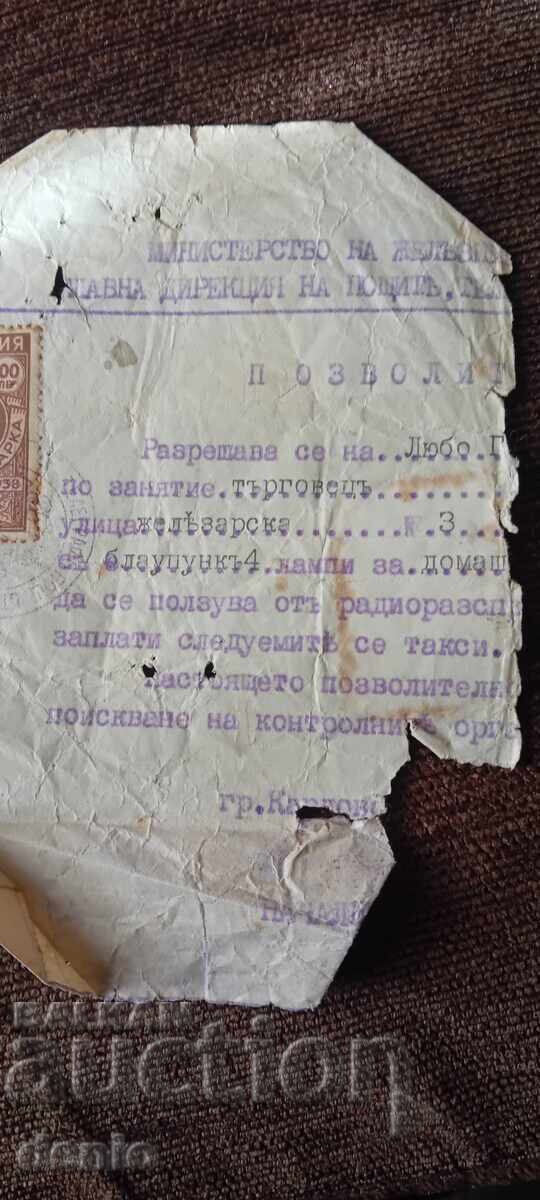 МИНИСТЕРСТВО НА ЖЕЛѢЗ
ЛАВНА ДИРЕКЦИЯ НА ПОЩИТѢ, ТЕЛ
ПОЗВОЛИТ
Разрешава се на..Любо.Г
по занятие.търговецъ
улица желѣзарска.......№.3...
съ блаупункъ4.лампи за.домаш
да се ползува отъ радиоразсп
заплати следуемитѣ се такси.
Настоящето позволително
поискване на контролнитѣ орг
гр.Карлово
НАЧАЛН
ИЯ
00
ЛВ
АРКА
938
BALKAN
auction
denio